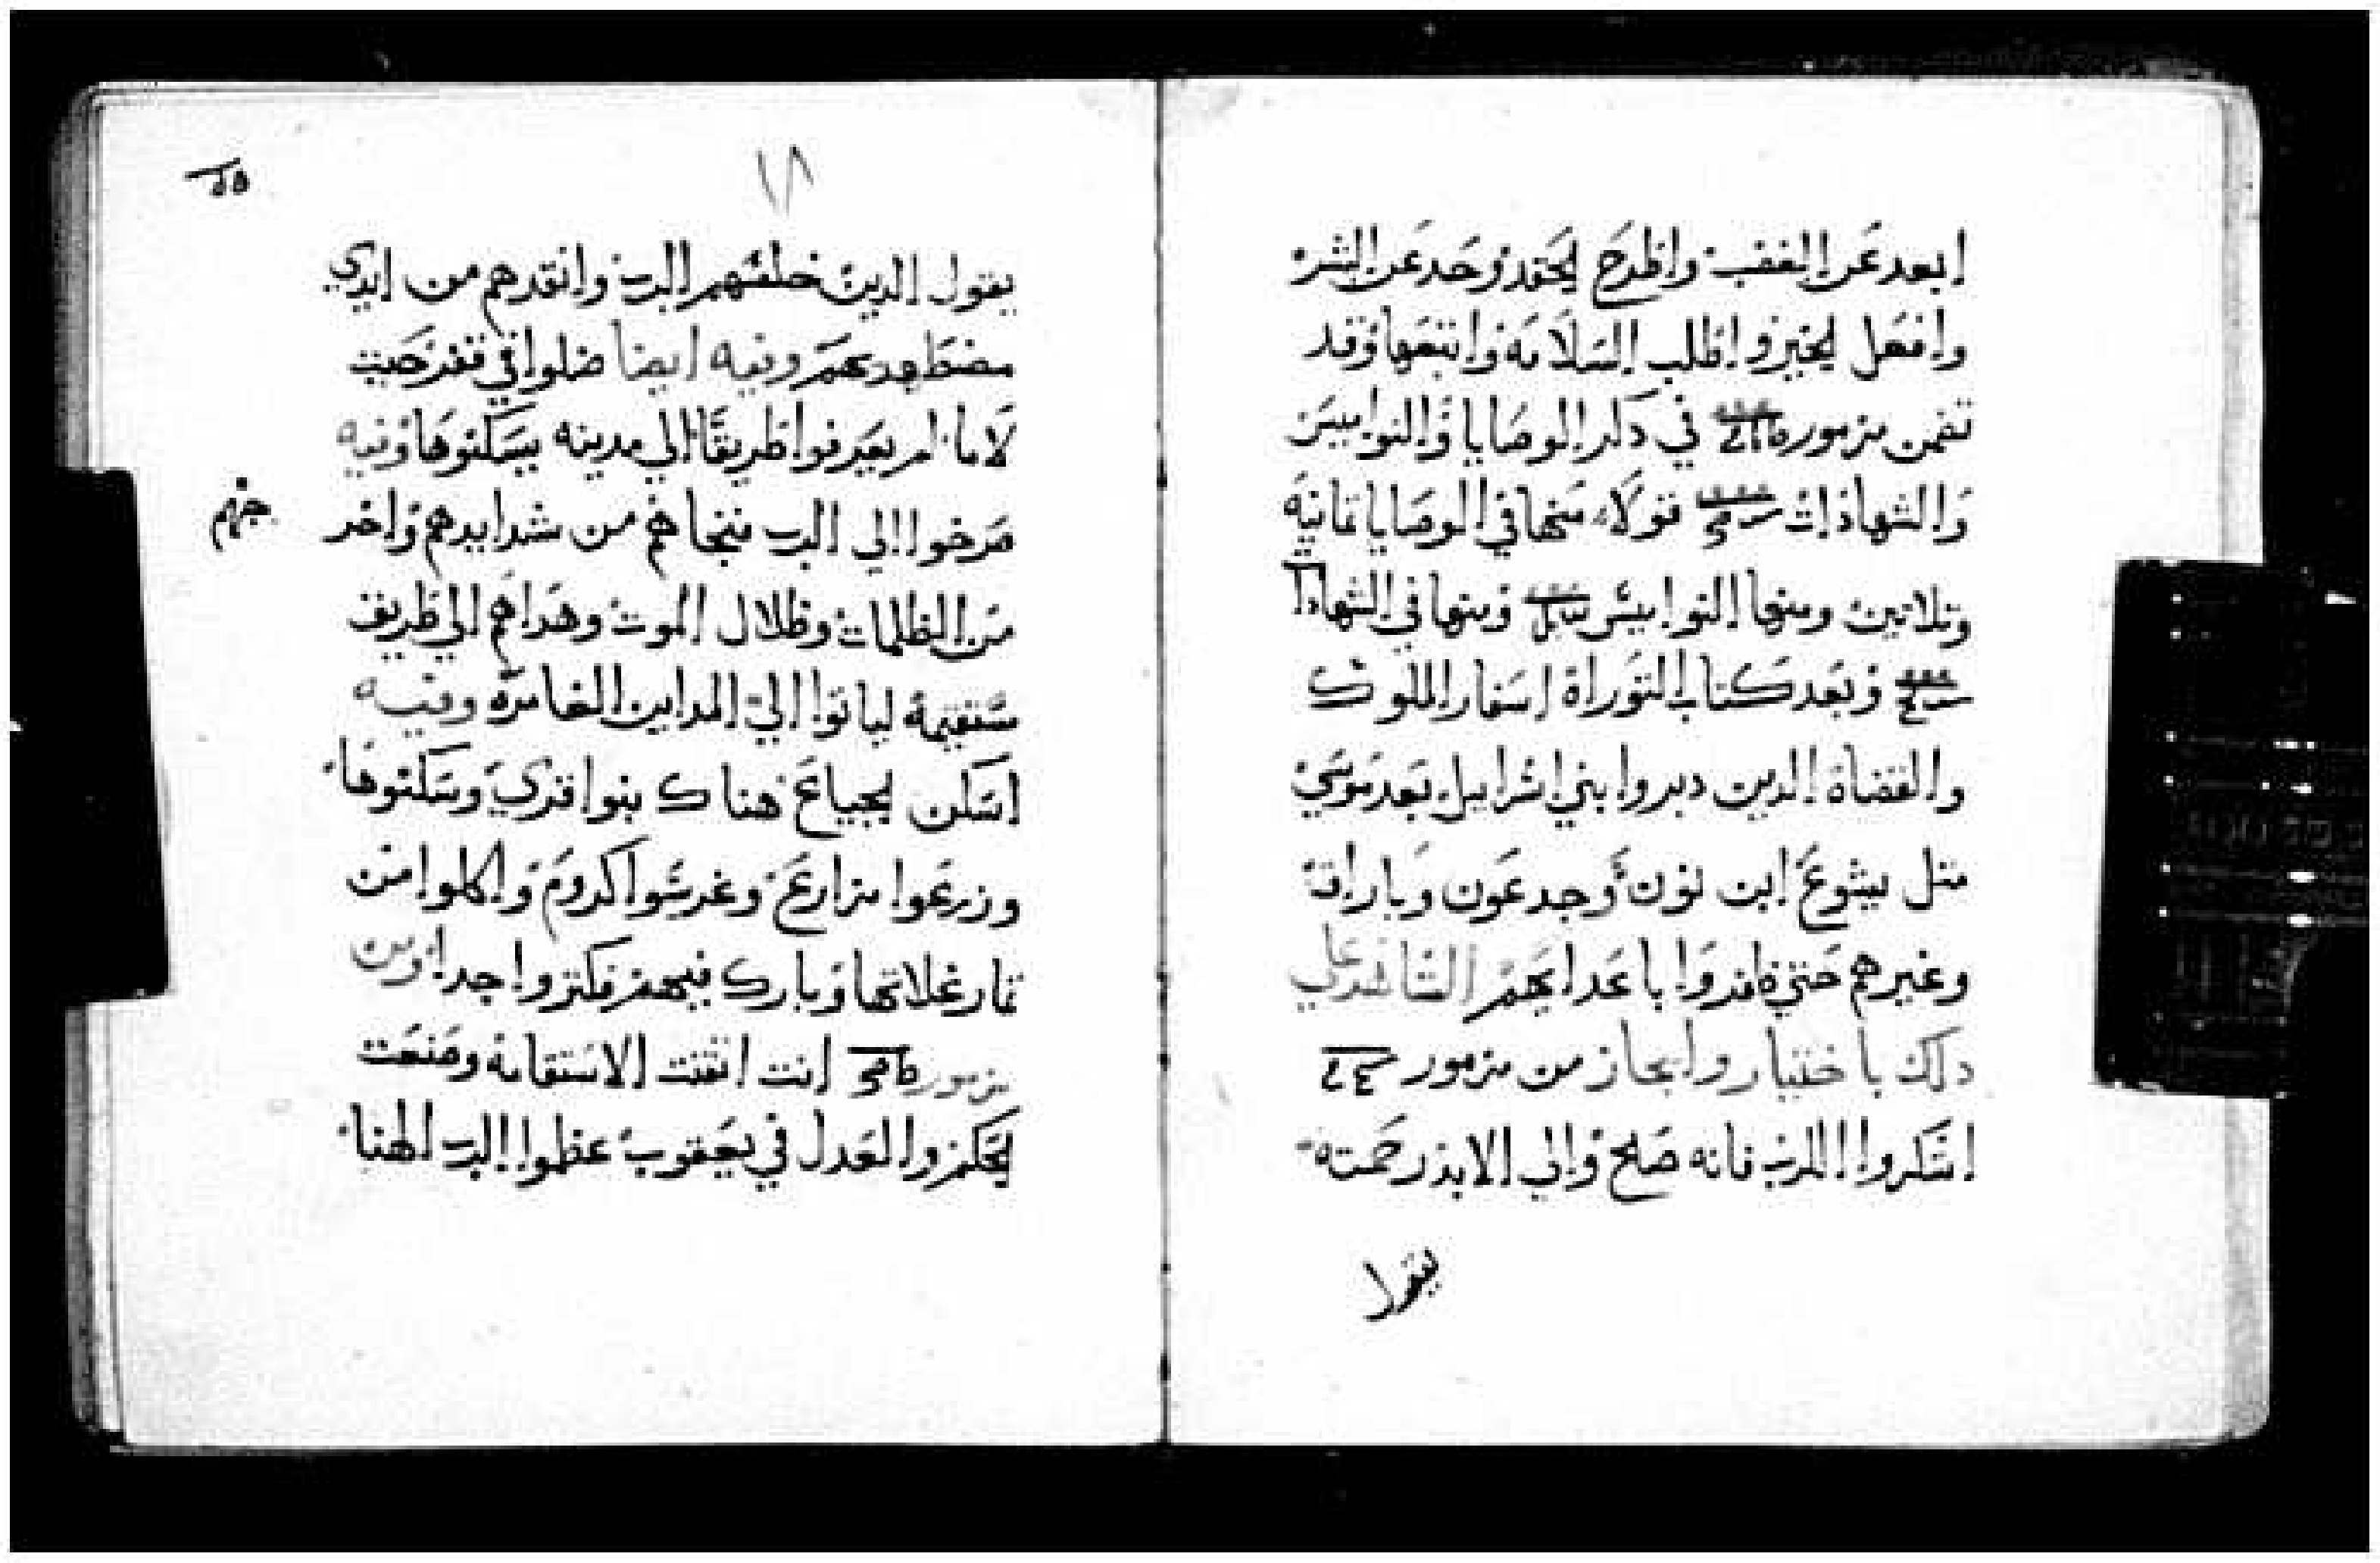 ابعد عن الغضب واطرح الحقد وحد عن الشر
وافعل الخير واطلب السلامة واتبعها وقد
تضمن مزمور في دكر الوصايا والنواميس
والشهادات قولا منها في الوصايا تمانية
وتلاتين ومنها النواميس ومنها في الشهادا
وبعد كتاب التوراة اسفار الملوك
والقضاة الدين دبروا بني اسراييل بعد موسي
متل يشوع ابن نون وجدعون وباراق
وغيرهم حتي ظفروا باعدايهم الشاهد علي
دلك باختيار وايجاز من مزمور
اشكروا للرب فانه صلح والي الابد رحمته
يقول
١٨
يقول الدين خلصهم الرب وانقدهم من ايدي
مضطهديهم وفيه ايضا ضلوا في قفر حيت
لا ما لم يعرفوا طريقا الي مدينه يسكنوها وفيه
صرخوا الي الرب فنجاهم من شدايدهم واخر
جهم
من الظلمات وظلال الموت وهداهم الي طريق
مستقيمه لياتوا الي المداين العامرة وفيه
اسكن الجياع هناك بنوا قري وسكنوها
وزرعوا مزارع وغرسوا كروم واكلوا من
تمار غلاتها وبارك فيهم فكتروا جدا ومن
مزمور انت اتقنت الاستقامه وصنعت
الحكم والعدل في يعقوب عظموا الرب الهنا